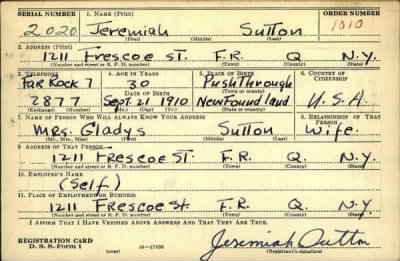 SERIAL NUMBER 1. NAME (Print) ORDER NUMBER
2020 Jeremiah Sutton 1010
(First) (Middle) (Last)
2. ADDRESS (Print)
1211 Frescoe ST. F.R. Q. N.Y.
(Number and street or R. F. D. number) (Town) (County) (State)
3. TELEPHONE 4. AGE IN YEARS 5. PLACE OF BIRTH 6. COUNTRY OF CITIZENSHIP
Far Rock. 7 30 PushThrough
DATE OF BIRTH (Town or county)
2877 Sept. 21 1910 NewFoundland U.S.A.
(Exchange) (Number) (Mo.) (Day) (Yr.) (State or country)
7. NAME OF PERSON WHO WILL ALWAYS KNOW YOUR ADDRESS 8. RELATIONSHIP OF THAT PERSON
Mrs. Gladys Sutton Wife.
(Mr., Mrs., Miss) (First) (Middle) (Last)
9. ADDRESS OF THAT PERSON
1211 Frescoe ST. F.R. Q. N.Y.
(Number and street or R. F. D. number) (Town) (County) (State)
10. EMPLOYER'S NAME
(Self)
11. PLACE OF EMPLOYMENT OR BUSINESS
1211 Frescoe St. F.R. Q. N.Y.
(Number and street or R. F. D. number) (Town) (County) (State)
I AFFIRM THAT I HAVE VERIFIED ABOVE ANSWERS AND THAT THEY ARE TRUE.
REGISTRATION CARD
D. S. S. Form 1 (over) 16-17105 Jeremiah Sutton
(Registrant's signature)